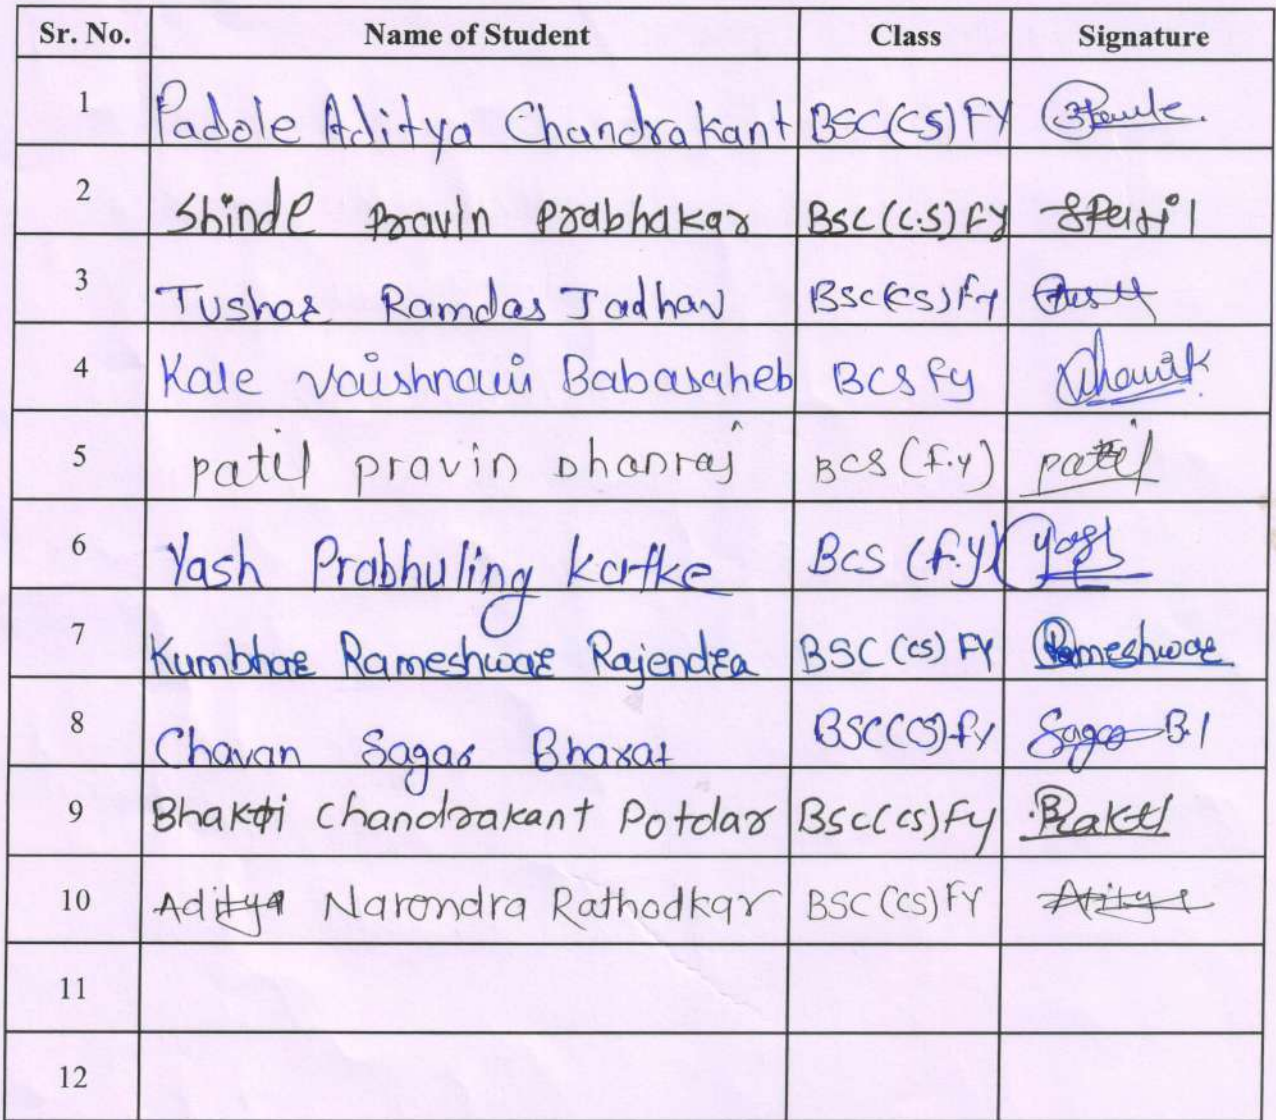 Sr. No. Name of Student Class Signature
1 Padole Aditya Chandrakant BSC(CS)FY
2 Shinde Pravin Prabhakar BSC(C.S)FY
3 Tushar Ramdas Jadhav BSC(CS)FY
4 Kale Vaishnavi Babasaheb BCS Fy
5 patil pravin Dhanraj BCS (F.Y) patil
6 Yash Prabhuling Katke BCS (F.Y) Yash
7 Kumbhar Rameshwar Rajendra BSC(CS) FY Rameshwar
8 Chavan Sagar Bharat BSC(CS)fy Sagar B.
9 Bhakti Chandrakant Potdar BSC(CS)Fy Bhakti
10 Aditya Narendra Rathodkar BSC(CS)FY Aditya
11
12